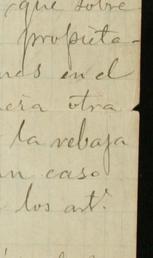 que sobre
propieta-
en el
otra
la rebaja
caso
los art.s